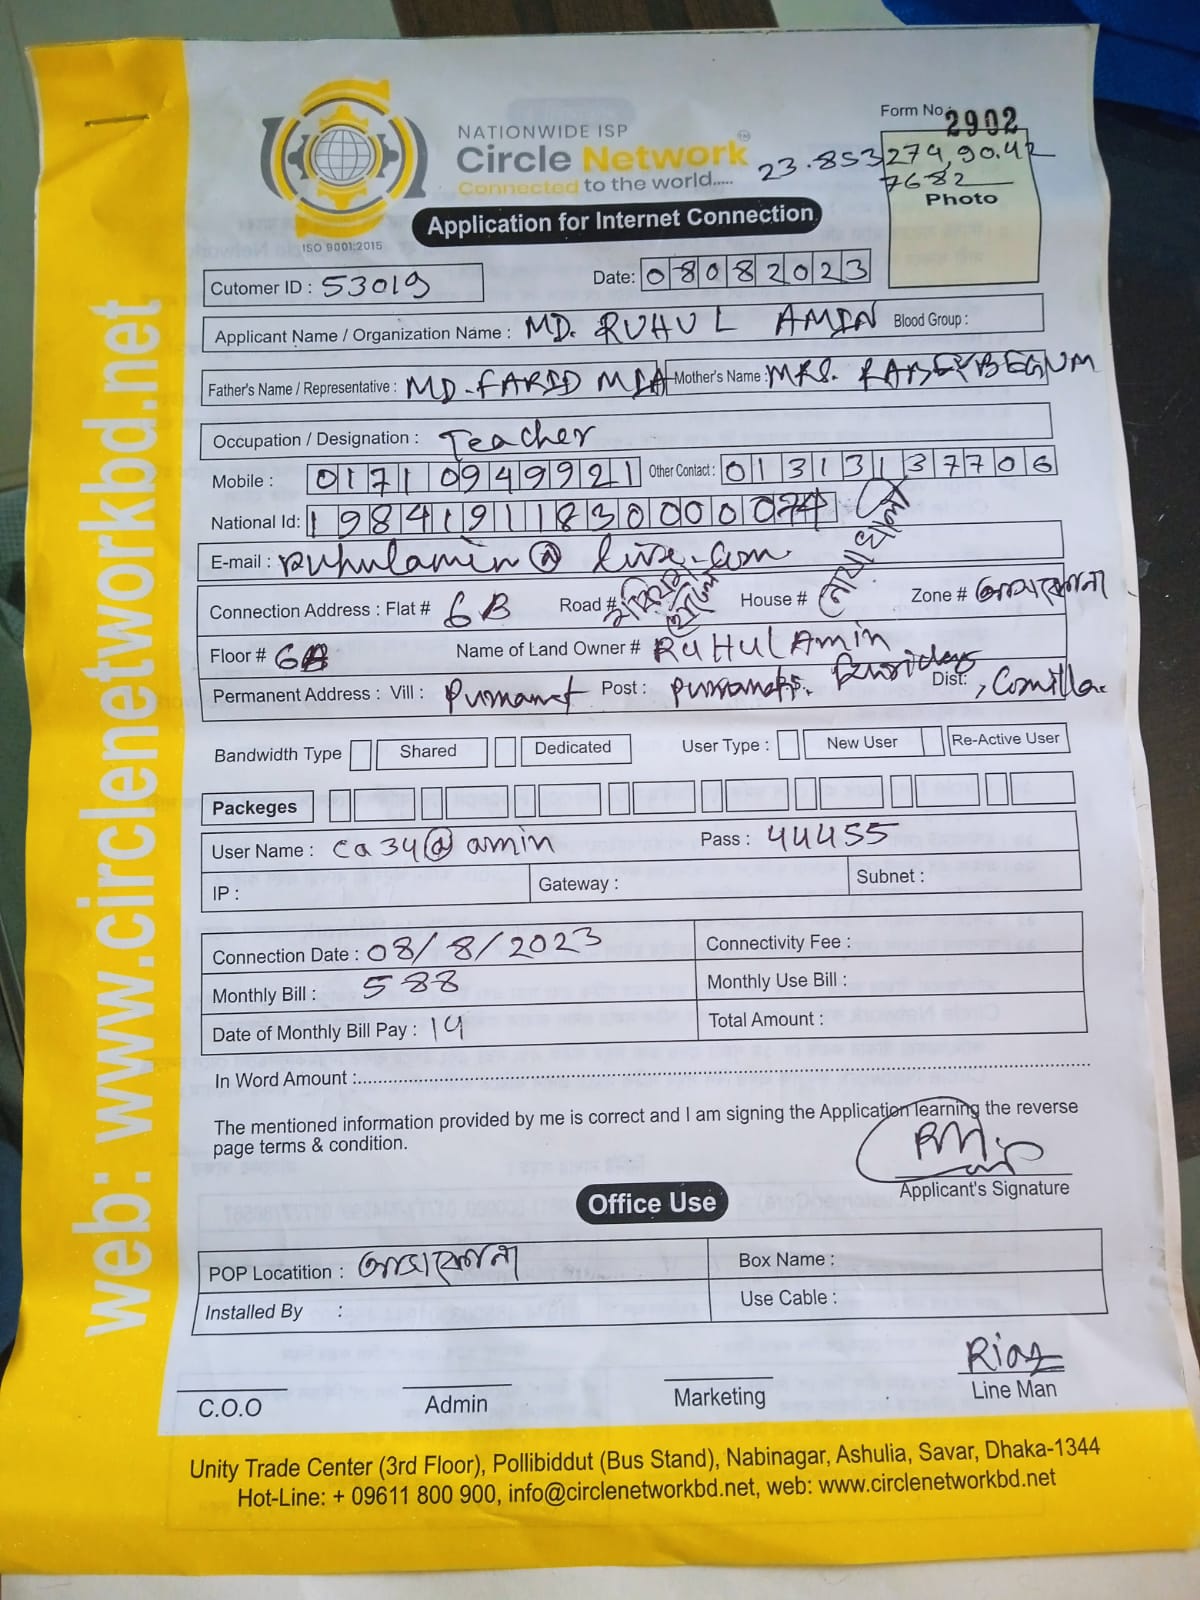 Form No: 2902
NATIONWIDE ISP
Circle Network
Connected to the world.....
ISO 9001:2015
23.853274, 90.42
7682
Photo
Application for Internet Connection
Cutomer ID : 53019
Date: 08082023
Applicant Name / Organization Name : MD. RUHUL AMIN Blood Group :
Father's Name / Representative : MD. FARID MIA Mother's Name : MRS. BEGUM
Occupation / Designation : Teacher
Mobile : 01710949921 Other Contact : 01313137706
National Id: 19841911830000074
E-mail : ruhulamin@live.com
Connection Address : Flat # 6B Road # House # Zone #
Floor # 6A Name of Land Owner # RUHUL AMIN
Permanent Address : Vill : Post : Dist: , Comilla.
Bandwidth Type Shared Dedicated User Type : New User Re-Active User
Packeges
User Name : ca34@amin Pass : 44455
IP : Gateway : Subnet :
Connection Date : 08/8/2023 Connectivity Fee :
Monthly Bill : 588 Monthly Use Bill :
Date of Monthly Bill Pay : 14 Total Amount :
In Word Amount :
The mentioned information provided by me is correct and I am signing the Application learning the reverse
page terms & condition.
Applicant's Signature
Office Use
POP Locatition : Box Name :
Installed By : Use Cable :
Riaz
C.O.O Admin Marketing Line Man
Unity Trade Center (3rd Floor), Pollibiddut (Bus Stand), Nabinagar, Ashulia, Savar, Dhaka-1344
Hot-Line: + 09611 800 900, info@circlenetworkbd.net, web: www.circlenetworkbd.net
web: www.circlenetworkbd.net